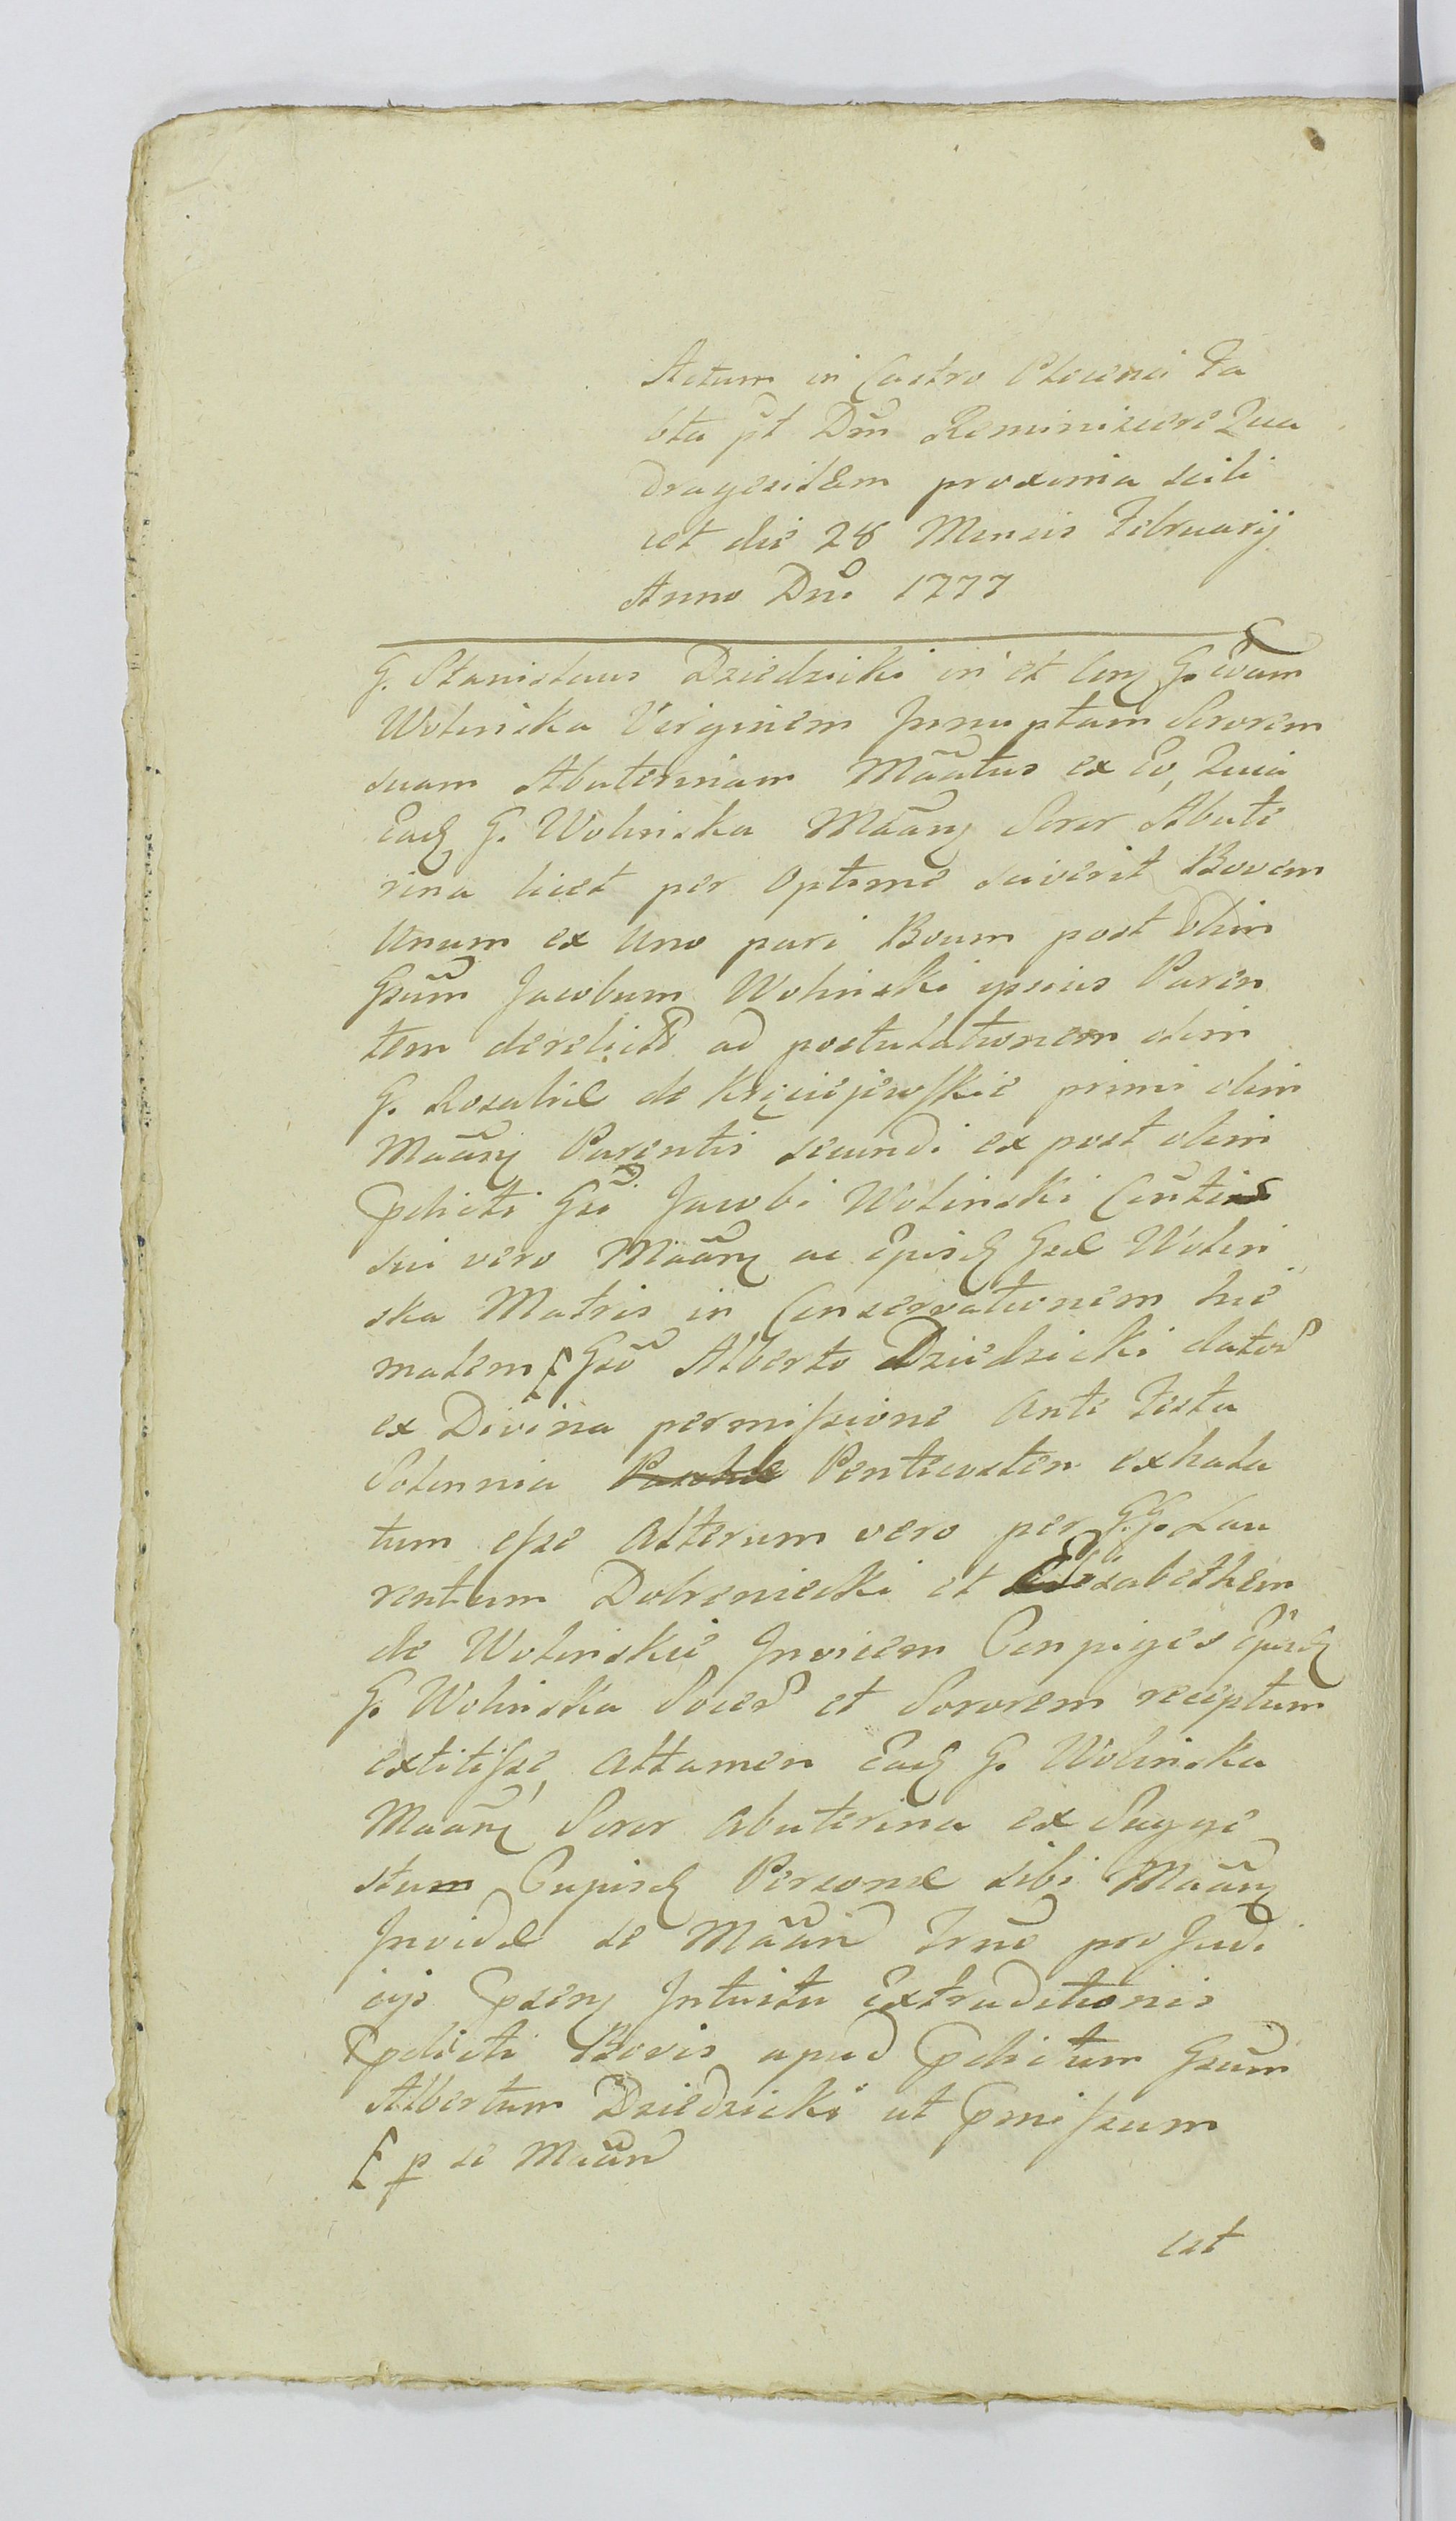 Actum in Castro Plocensi Fa
bta pt Dm̃ Reminiscere Qua
dragesitem proxima scili
cet die 28 Mensis Februarij
Anno Dnĩ 1777
G. Stanislaus Dziedzicki in et Con̄ G. Evam
Wolinska Virginem Innuptam Sororem
suam Abuterinam Mãatus ex Eo, Quia
Ead G. Wolinska Mãan̄ Soror Abute
rina licet per optime sciverit Bovem
Unum ex Uno pari Boum post olim
Gsũm Jacobum Wolinski ipsius Paren
tem derelict ad postulationem olim
G. Rosaliæ de Kręciejewskie primi olim
Mãan̄ Parentis secundi ex post olim
Pdicti Gsĩ Jacobi Wolinski Cõnti
sui vero Mãan̄ ac Episd Gsæ Wolin
ska Matris in Conservationem hie
malem Gsõ Alberto Dziedzicki dator
ex Divina permissione Ante Festa
Solennia Paschæ Pentecosten exhala
tum esse Alterum vero per G.G. Lau
rentium Dobrzeniecki et Elisabethem
de Wolinskie Invicem Conjuges Episd
G. Wolinska Socer et Sororem receptum
extitisse, Attamen Ead G. Wolinska
Mãan̄ Soror abuterina ex Sugge
stum Cupisd Personæ sibi Mãan̄
Invidæ se Mãan Trñe pro Judi
cijs Psen̄ Intuitu Extraditionis
Pdicti Bovis apud Pdictum Gsũm
Albertum Dziedzicki ut Pmissum
p se Mãan
est